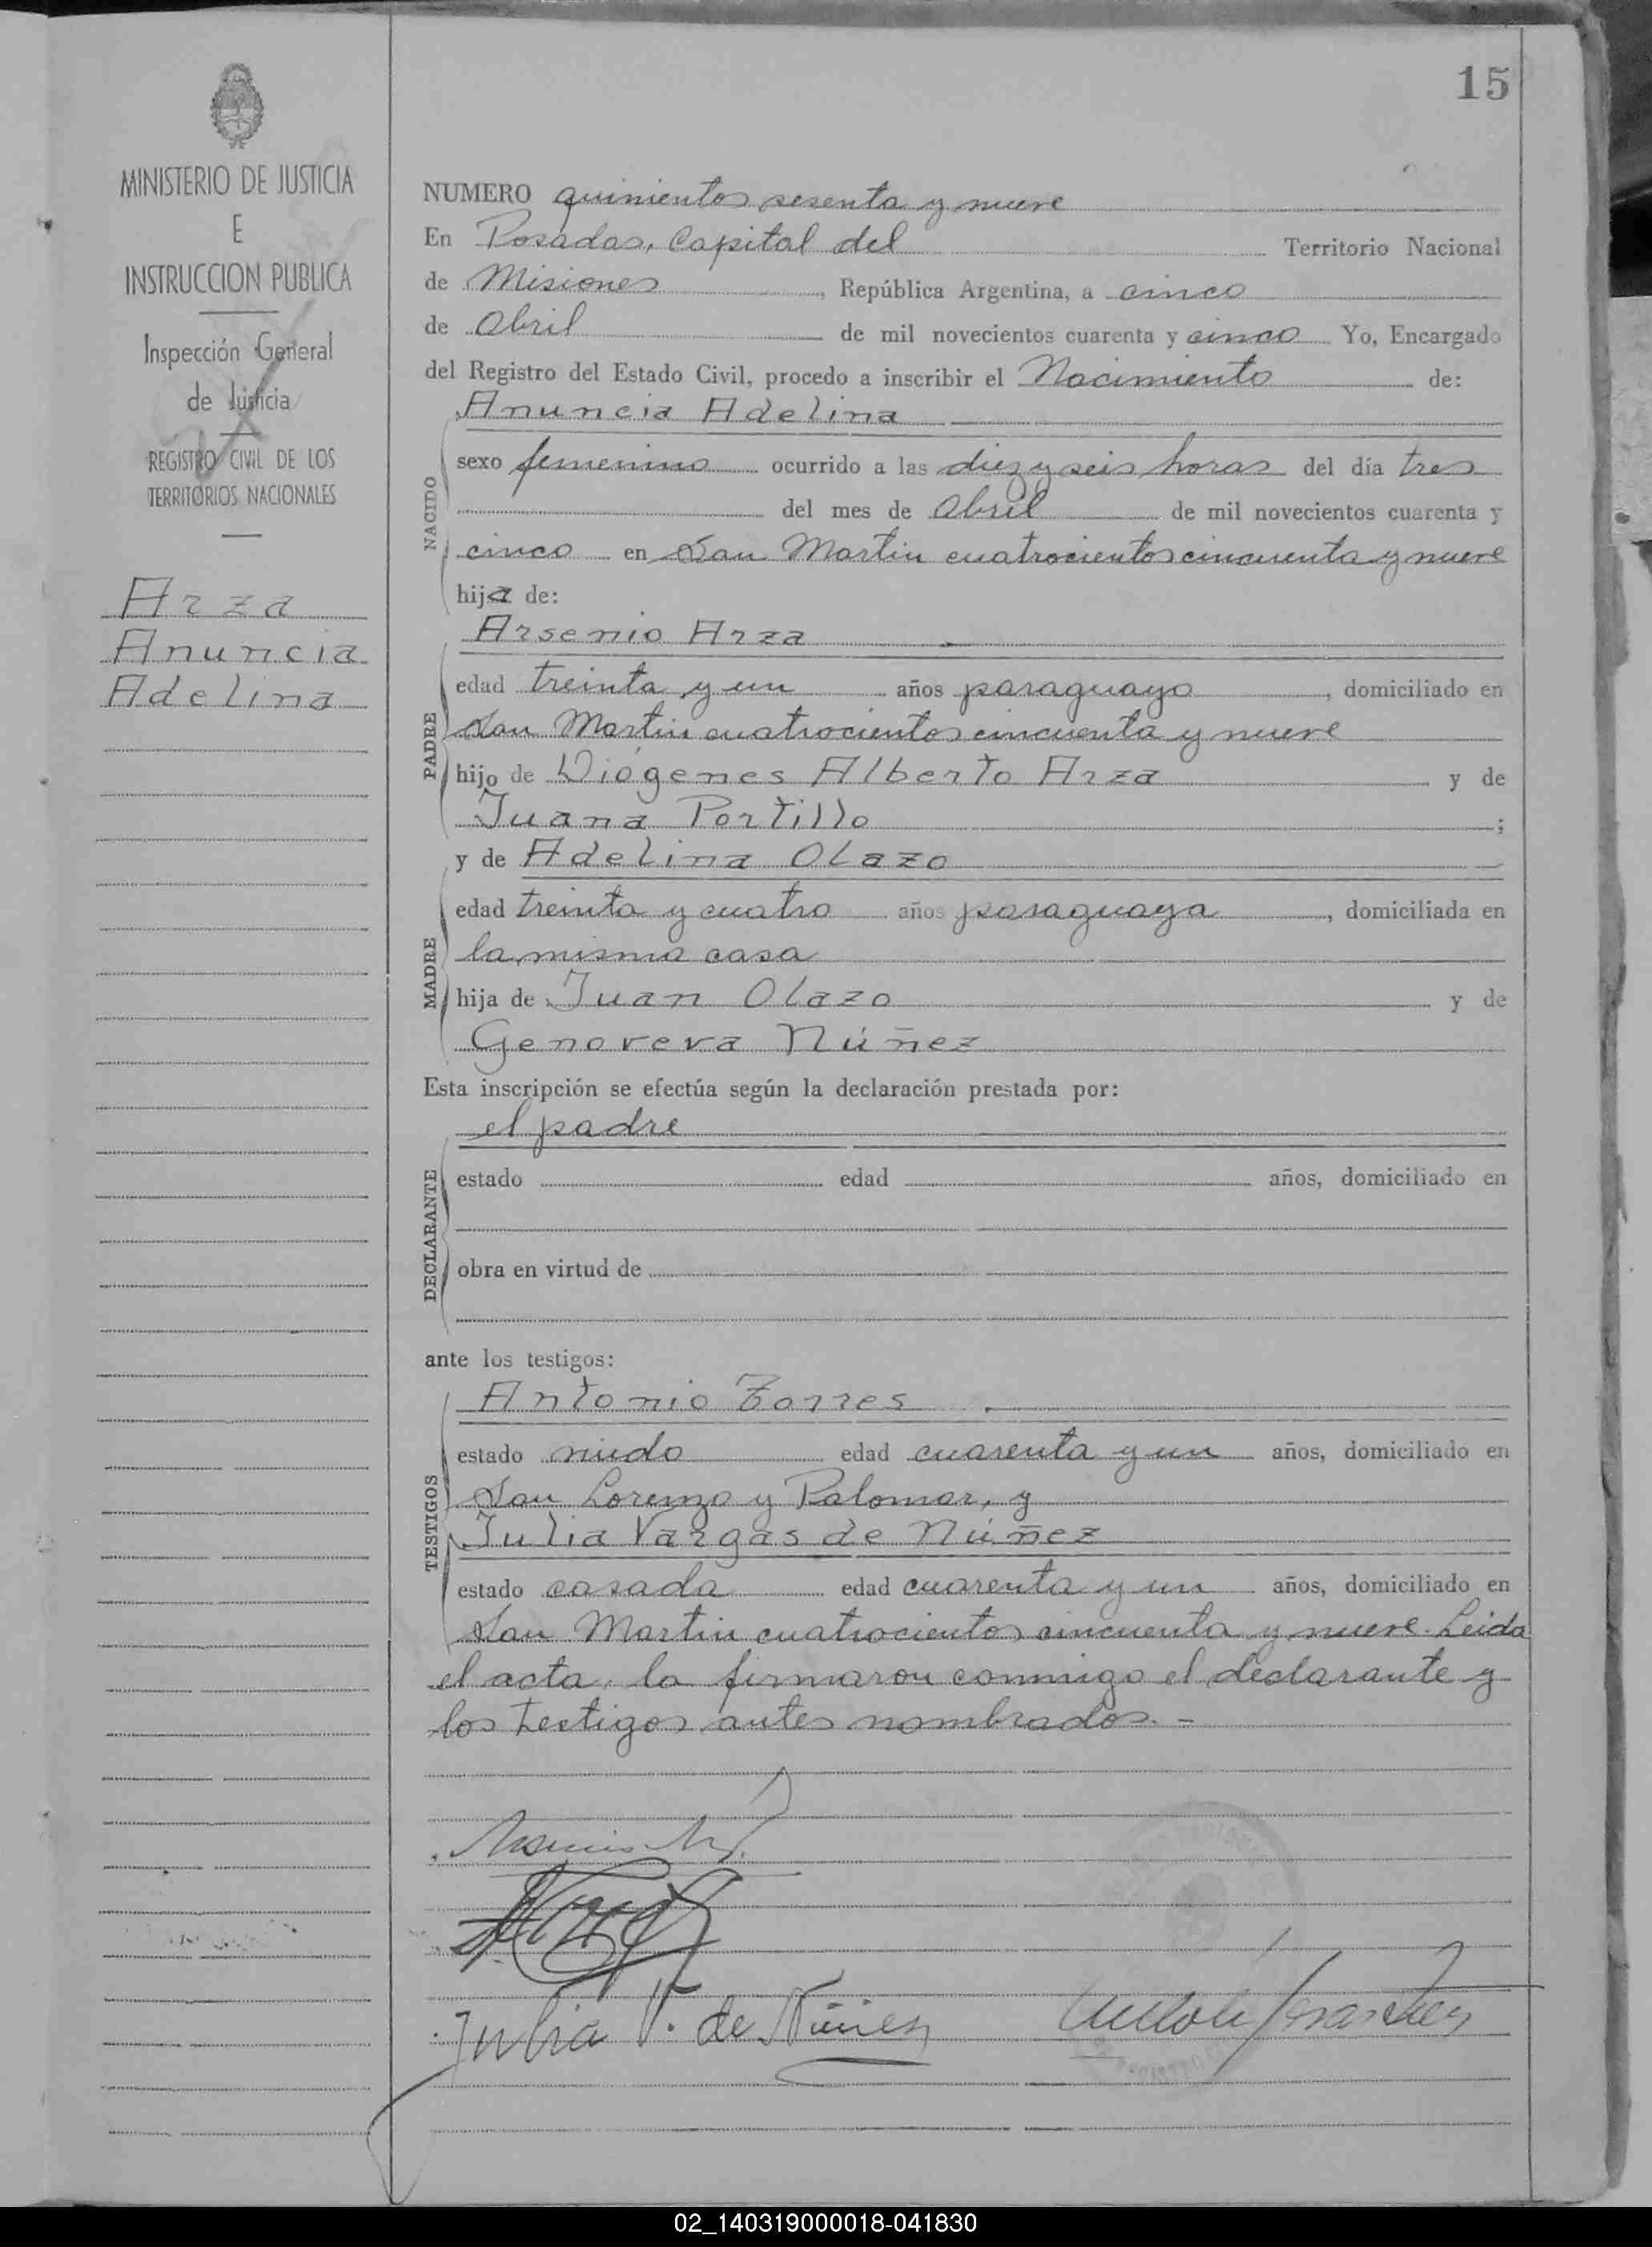 15
MINISTERIO DE JUSTICIA
E
INSTRUCCION PUBLICA
Inspección General
de Justicia
REGISTRO CIVIL DE LOS
TERRITORIOS NACIONALES
Arza
Anuncia
Adelina
NUMERO quinientos sesenta y nueve
En Posadas, Capital del Territorio Nacional
de Misiones, República Argentina, a cinco
de Abril de mil novecientos cuarenta y cinco Yo, Encargado
del Registro del Estado Civil, procedo a inscribir el Nacimiento de:
Anuncia Adelina
NACIDO
sexo femenino ocurrido a las diez y seis horas del día tres
del mes de Abril de mil novecientos cuarenta y
cinco en San Martin cuatrocientos cincuenta y nueve
hija de:
Arsenio Arza
PADRE
edad treinta y un años paraguayo, domiciliado en
San Martin cuatrocientos cincuenta y nueve
hijo de Diógenes Alberto Arza y de
Juana Portillo;
y de Adelina Olazo
MADRE
edad treinta y cuatro años paraguaya, domiciliada en
la misma casa
hija de Juan Olazo y de
Genoveva Núñez
Esta inscripción se efectúa según la declaración prestada por:
el padre
DECLARANTE
estado edad años, domiciliado en
obra en virtud de
ante los testigos:
Antonio Torres
TESTIGOS
estado viudo edad cuarenta y un años, domiciliado en
San Lorenzo y Palomar, y
Julia Vargas de Núñez
estado casada edad cuarenta y un años, domiciliado en
San Martin cuatrocientos cincuenta y nueve. Leida
el acta, la firmaron conmigo el declarante y
los testigos antes nombrados.-
Julia V. de Núñez
02_140319000018-041830